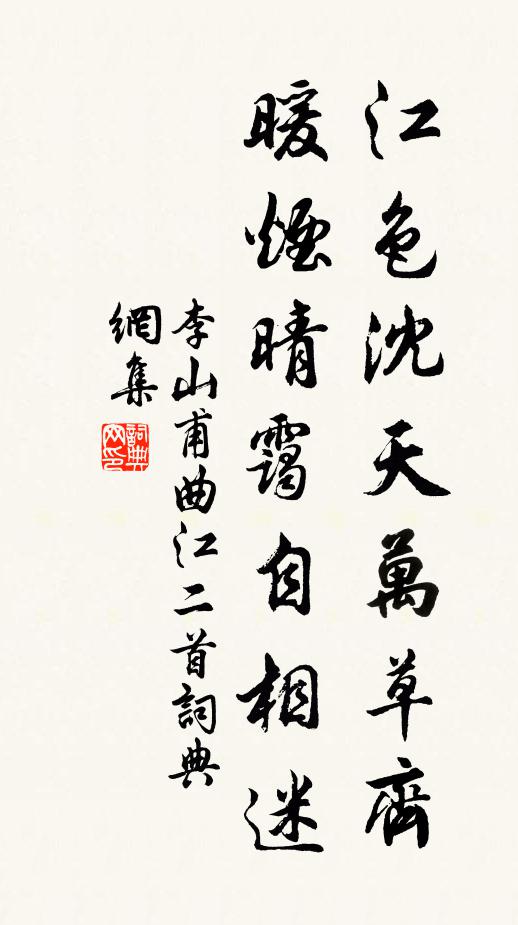 江色沈天萬草齊
暖煙晴靄自相迷
李山甫曲江二首詞典
網集
詞典
网印